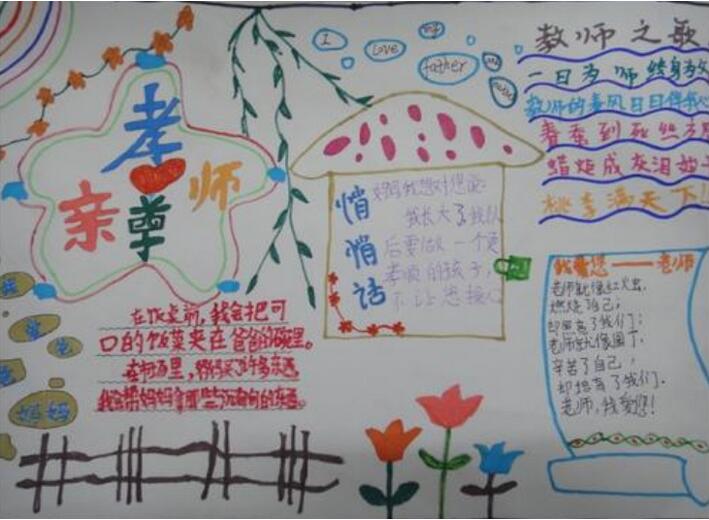 孝
亲
尊
师
爸爸
妈妈
在饭桌前,我会把可
口的饭菜夹在爸爸的碗里。
I
Love
my
father
and
悄悄话
妈妈我想对您说:
我长大了我以
后要做一个更
孝顺的孩子,
不让您担心
教师之歌
一日为师终身为父
教师的春风日日伴我心
春蚕到死丝方
蜡炬成灰泪始
桃李满天下!
我爱您——老师
老师就像红火虫,
燃烧了自己;
却照亮了我们;
老师就像园丁,
辛苦了自己,
却培育了我们.
老师,我爱您!